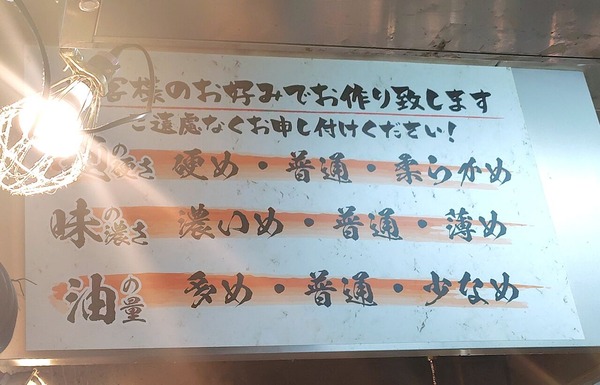 客様のお好みでお作り致します
ご遠慮なくお申し付けください!
の硬さ 硬め・普通・柔らかめ
味の濃さ 濃いめ・普通・薄め
油の量 多め・普通・少なめ